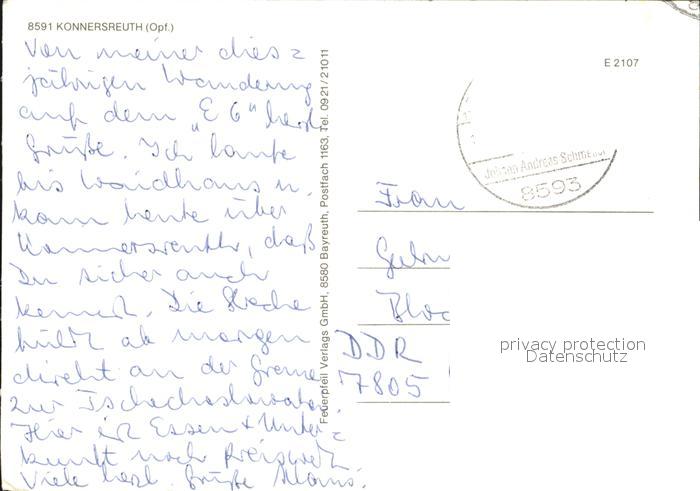 8591 KONNERSREUTH (Opf.)
Von meiner dies=
jährigen Wanderung
auf dem „E 6" herzl.
Grüße. Ich laufe
bis Waidhaus u.
kam heute über
Konnersreuth, daß
Du sicher auch
kennst. Die Strecke
führt ab morgen
direkt an der Grenze
zur Tschechoslowakei.
Hier ist Essen + Unter=
kunft noch preiswert.
Viele herzl. Grüße Klaus.
Feuerpfeil Verlags GmbH, 8580 Bayreuth, Postfach 1163, Tel. 0921/21011
E 2107
Johann Andreas
8593
Frau
DDR
7805
privacy protection
Datenschutz